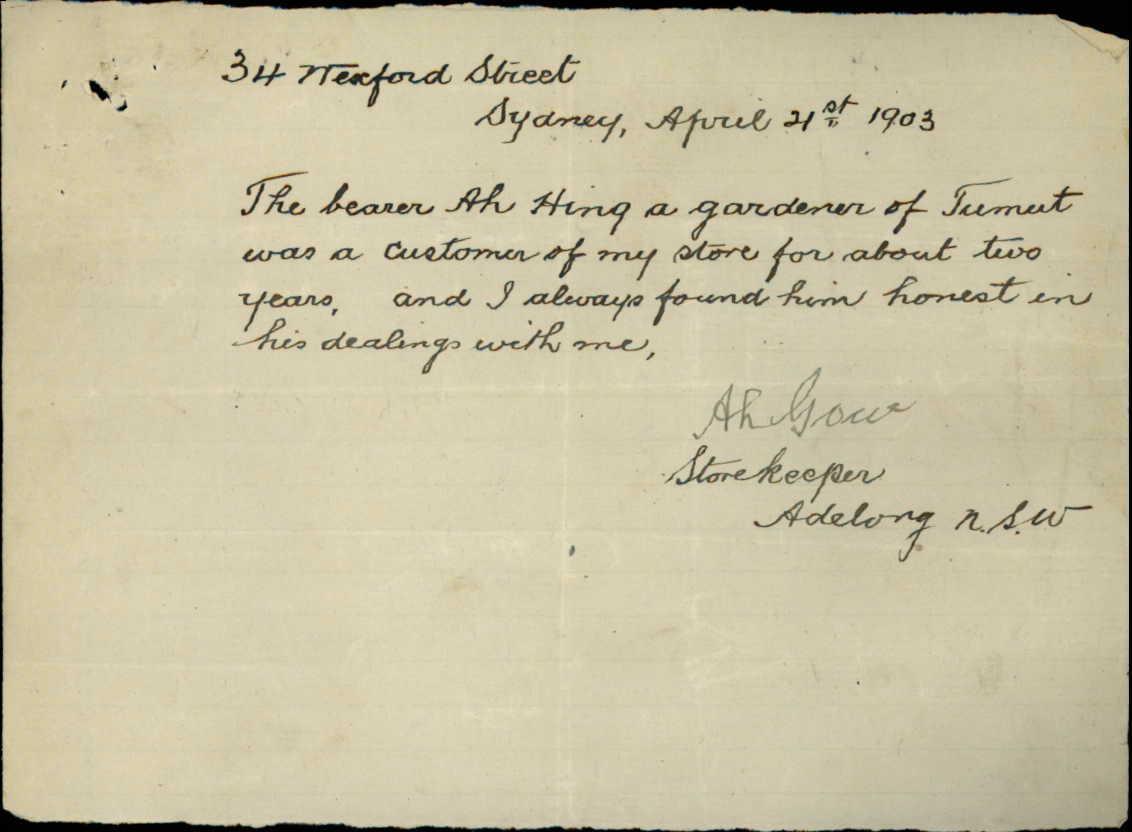 34 Wexford Street
Sydney, April 21st 1903
The bearer Ah Hing a gardener of Tumut
was a customer of my store for about two
years, and I always found him honest in
his dealings with me,
Ah Gow
Storekeeper
Adelong N.S.W